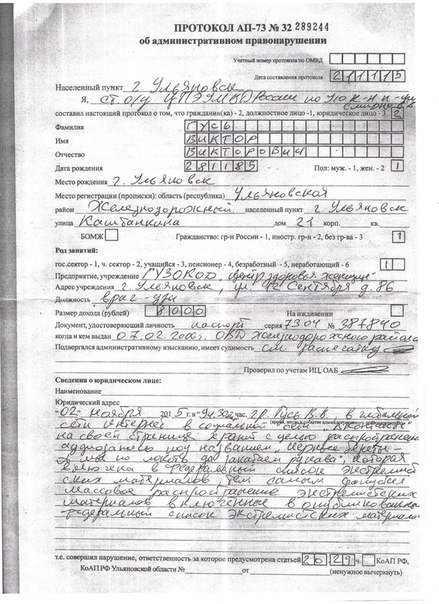 ПРОТОКОЛ АП-73 № 32 289244
об административном правонарушении
Учетный номер протокола по ОМВД
Дата составления протокола 271115
Населенный пункт г. Ульяновск
Я, ст. о/у ЦПЭ УМВД России по Ул.
составил настоящий протокол о том, что гражданин(ка) - 2, должностное лицо -1, юридическое - 3 2
Фамилия ГУСЬ
Имя ВИКТОР
Отчество ВИКТОРОВИЧ
Дата рождения 281185 Пол: муж. - 1, жен. - 2 1
Место рождения г. Ульяновск
Место регистрации (прописки): область (республика) Ульяновская
район Железнодорожный населенный пункт г. Ульяновск
улица Каштанкина дом 21 корп. кв.
БОМЖ Гражданство: гр-н России - 1, иностр. гр-н - 2, без гр-ва - 3 1
Род занятий:
гос.сектор - 1, ч. сектор - 2, учащийся - 3, пенсионер - 4, безработный - 5, неработающий - 6 1
Предприятие, учреждение ГУЗ
Адрес учреждения г. Ульяновск, 12 Сентября д. 86
Должность врач - узи
Размер дохода (рублей) 8000 На иждивении
Документ, удостоверяющий личность паспорт серия 7304 № 387840
когда и кем выдан 07.02.2006г. ОВД Железнодорожного района
Подвергался административному взысканию, имеет судимость см. распечатку
Проверил по учетам ИЦ, ОАБ
Сведения о юридическом лице:
Наименование
Юридический адрес
"02" ноября 2015 г. в "9ч.30м" час. гр. Гусь В.В. в глобальной
сети интернет в социальной сети "вконтакте"
на своей странице хранит с целью распространения
аудиозапись под названием
которая
включена в Федеральный список экстремист-
ских материалов, тем самым допустил
массовое распространение экстремистских
материалов включенные в опубликованный
федеральный список экстремистских материалов
т.е. совершил нарушение, ответственность за которое предусмотрена статьей 20 29 ч. КоАП РФ,
КоАП РФ Ульяновской области № от (ненужное вычеркнуть)